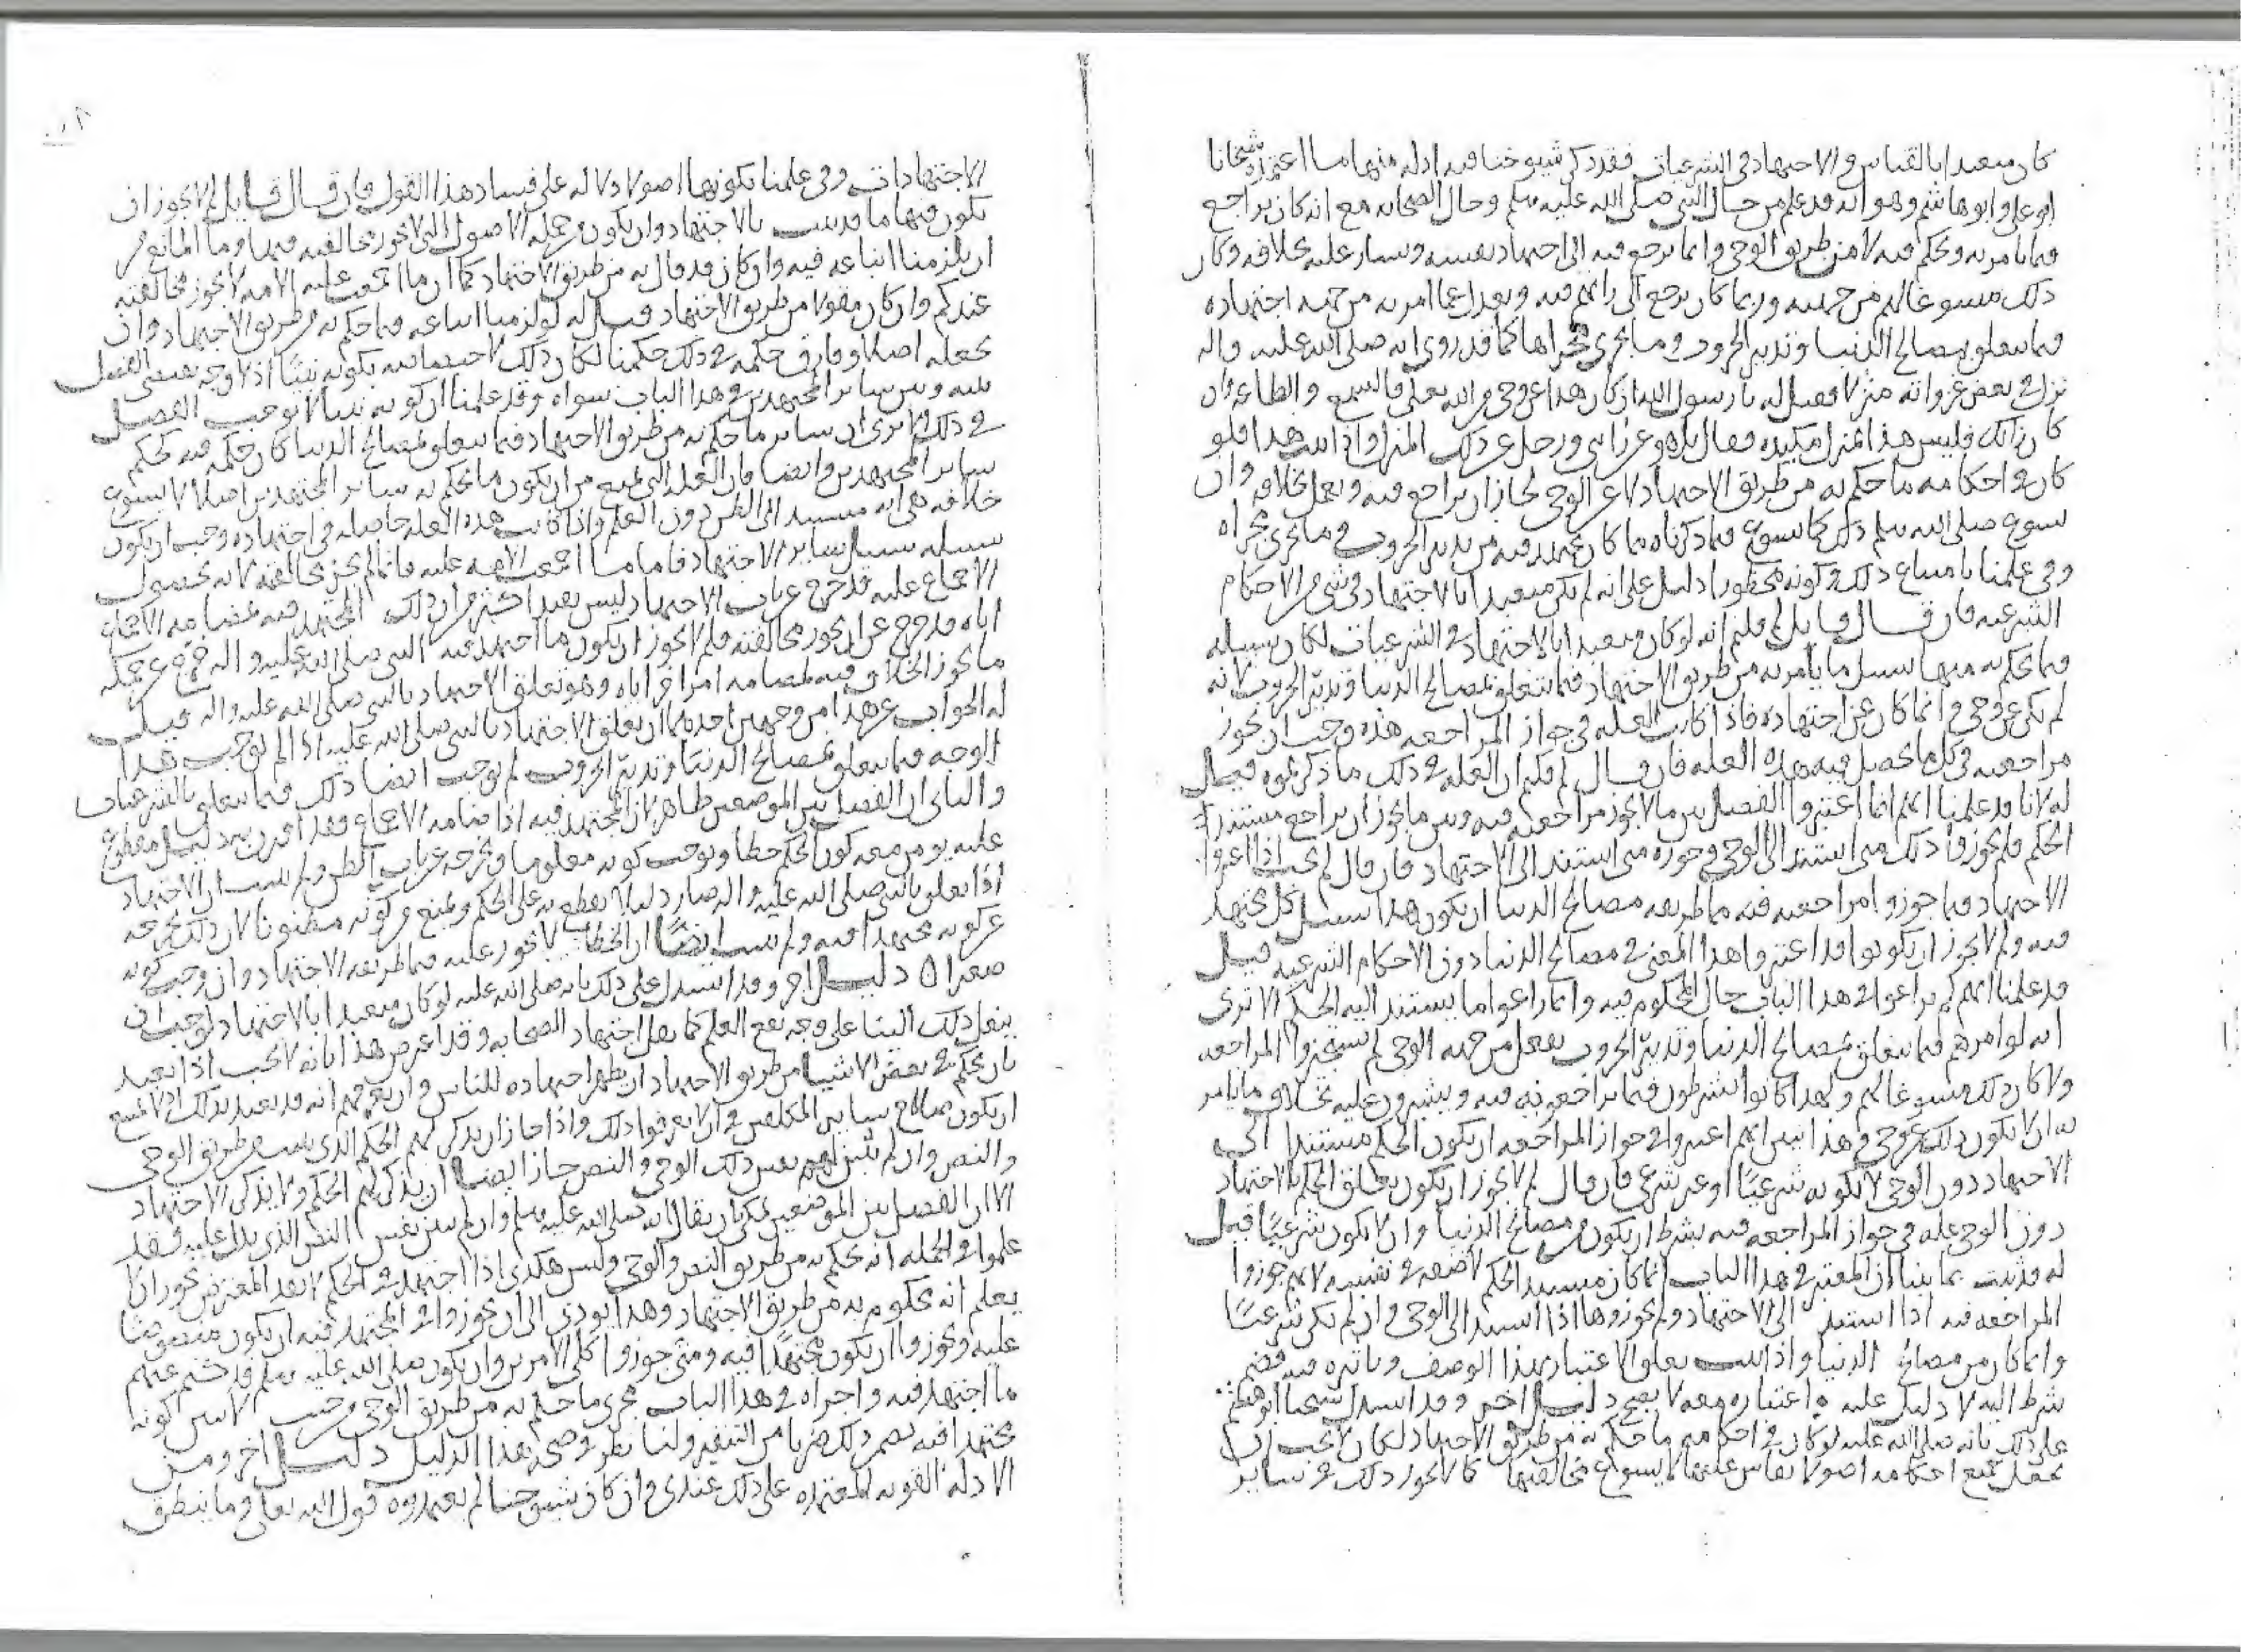 كان متعبدا بالقياس والاجتهاد في الشرعيات فقد ذكر شيوخنا فيه ادله منها ما اعتمده شيخانا
ابو علي وابو هاشم وهو انه قد علم من حال النبي صلى الله عليه وسلم وحال الصحابه مع انه كان يراجع
فيما يامر به ويحكم فيه لا من طريق الوحي وانما يرجع فيه الى اجتهاد نفسه ويشار عليه بخلافه وكان
ذلك مسوغا لهم من جهته وربما كان يرجع الى رائهم فيه ويعدل عما امر به من جهه اجتهاده
فيما يتعلق بمصالح الدنيا وتدبير الحروب وما يجري مجراها كما قد روي انه صلى الله عليه واله
نزل في بعض غزواته منزلا فقيل له يا رسول الله ان كان هذا عن وحي من الله تعالى فالسمع والطاعه وان
كان ذلك فليس هذا بمنزل مكيده فقال بل هو عن رايي ورحل عن ذلك المنزل واذا ثبت هذا فلو
كان في احكامه ما حكم به من طريق الاجتهاد لا عن الوحي لجاز ان يراجع فيه ويعمل بخلافه وان
يسوغ صلى الله عليه وسلم ذلك كما يسوغ فيما ذكرناه مما كان يجتهد فيه من تدبير الحروب وما يجري مجراه
وفي علمنا بامتناع ذلك وكونه محظورا دليل على انه لم يكن متعبدا بالاجتهاد في شي من الاحكام
الشرعيه فان قال قايل لم قلتم انه لو كان متعبدا بالاجتهاد في الشرعيات لكان سبيله
فيما يحكم به منها سبيل ما يامر به من طريق الاجتهاد فيما يتعلق بمصالح الدنيا وتدبير الحروب لانه
لم يكن عن وحي وانما كان عن اجتهاده فاذا كانت العله في جواز المراجعه هذه وجب ان يجوز
مراجعته في كل ما يحصل فيه هذه العله فان قال لم قلتم ان العله في ذلك ما ذكرتموه قيل
له لانا قد علمنا انهم انما اعتبروا الفصل بين ما لا يجوز مراجعته فيه وبين ما يجوز ان يراجع مستند
الحكم فلم يجوزوا ذلك متى استند الى الوحي وجوزه متى استند الى الاجتهاد فان قال لم يجب اذا اعتبروا
الاجتهاد فيما جوزوا مراجعته فيه مما طريقه مصالح الدنيا ان يكون هذا سبيل كل مجتهد
فيه ولم لا يجوز ان يكونوا قد اعتبروا هذا المعنى في مصالح الدنيا دون الاحكام الشرعيه قيل
قد علمنا انهم لم يراعوا في هذا الباب حال المحكوم فيه وانما راعوا ما يستند اليه الحكم الا ترى
انه لو امرهم فيما يتعلق بمصالح الدنيا وتدبير الحروب بفعل من جهه الوحي لم يستجيزوا المراجعه
ولا كان ذلك مسوغا لهم ولهذا كانوا يشترطون فيما يراجعونه فيه ويشيرون عليه بخلاف ما يامر
به ان لا يكون ذلك عن وحي وفي هذا تبين انهم اعتبروا في جواز المراجعه ان يكون الحكم مستندا الى
الاجتهاد دون الوحي لا بكونه شرعيا او غير شرعي فان قال لم لا يجوز ان يكون تعلق الحكم بالاجتهاد
دون الوحي عله في جواز المراجعه فيه بشرط ان يكون من مصالح الدنيا وان لا يكون شرعيا قيل
له قد ثبت بما بينا ان المعتبر في هذا الباب انما كان مستند الحكم لا صفته في نفسه لانهم جوزوا
المراجعه فيه اذا استند الى الاجتهاد ولم يجوزوها اذا استند الى الوحي وان لم يكن شرعيا
وانما كان من مصالح الدنيا واذا ثبت تعلق الاعتبار بهذا الوصف وتاثيره فيه فضم
شرط اليه لا دليل عليه واعتباره معه لا يصح دليل اخر وقد استدل شيخنا ابو هاشم
على ذلك بانه صلى الله عليه لو كان في احكامه ما حكم به من طريق الاجتهاد لكان لا يجب ان
يجعل جميع احكامه اصولا يقاس عليها لا يسوغ مخالفتها كما لا يجوز ذلك في ساير
الاجتهادات وفي علمنا بكونها اصولا دلاله على فساد هذا القول فان قال قايل لم لا يجوز ان
يكون فيها ما قد ثبت بالاجتهاد وان يكون من جمله الاصول التي لا يجوز مخالفته فيها وما المانع من
ان يلزمنا اتباعه فيه وان كان قد قال به من طريق الاجتهاد كما ان ما اجمعت عليه الامه لا يجوز مخالفته
عندكم وان كان مقولا من طريق الاجتهاد قيل له لو لزمنا اتباعه فيما حكم به من طريق الاجتهاد وان
نجعله اصلا وفارق حكمه في ذلك حكمنا لكان ذلك لاختصاصه بكونه نبيا اذ لا وجه يقتضي الفصل
بينه وبين ساير المجتهدين في هذا الباب سواه وقد علمنا ان كونه نبيا لا يوجب الفصل
في ذلك الا ترى ان ساير ما حكم به من طريق الاجتهاد فيما يتعلق بمصالح الدنيا كان حكمه فيه كحكم
ساير المجتهدين وايضا فان العله التي تمنع من ان يكون ما يحكم به ساير المجتهدين اصلا لا يسوغ
خلافه هي انه مستند الى الظن دون العلم واذا كانت هذه العله حاصله في اجتهاده وجب ان يكون
سبيله سبيل ساير الاجتهاد فاما ما اجمعت الامه عليه فانما لم يجز مخالفته لانه بحصول
الاجماع عليه قد خرج عن باب الاجتهاد وليس بعد اكثر من ان ذلك المجتهد فيه بمضامه الاجماع
اياه قد خرج عن ان يجوز مخالفته فلم لا يجوز ان يكون ما اجتهد فيه النبي صلى الله عليه واله خرج عن حكم
ما يجوز الخلاف فيه لمضامه امر اخر اياه وهو تعلق الاجتهاد بالنبي صلى الله عليه واله قيل
له الجواب عن هذا من وجهين احدهما ان تعلق الاجتهاد بالنبي صلى الله عليه اذا لم يوجب هذا
الوجه فيما يتعلق بمصالح الدنيا وتدبير الحروب لم يوجب ايضا ذلك فيما يتعلق بالشرعيات
والثاني ان الفصل بين الموضعين ظاهر لان المجتهد فيه اذا ضامه الاجماع فقد اقترن به دليل مقطوع
عليه يومن معه كون الحكم خطا ويوجب كونه معلوما ويخرجه عن باب الظن ولم يثبت ان الاجتهاد
اذا تعلق بالنبي صلى الله عليه واله صار دليلا يقطع به على الحكم ويمنع من كونه مظنونا لان ذلك يخرجه
عن كونه مجتهدا فيه ولم يثبت ايضا ان الخطا لا يجوز عليه فيما طريقه الاجتهاد وان وجب كونه
صغيرا دليل اخر وقد استدل على ذلك بانه صلى الله عليه لو كان متعبدا بالاجتهاد لوجب ان
ينقل ذلك الينا على وجه يقع العلم كما نقل اجتهاد الصحابه وقد اعترض هذا بانه لا يجب اذا تعبد
بان يحكم في بعض الاشيا من طريق الاجتهاد ان يظهر اجتهاده للناس وان يعرفهم انه قد تعبد بذلك اذ لا يمتنع
ان يكون صلاح ساير المكلفين في ان لا يعرفوا ذلك واذا جاز ان يذكر لهم الحكم الذي يثبت من طريق الوحي
والنص وان لم يبين لهم نفس ذلك الوحي والنص جاز ايضا ان يذكر لهم الحكم ولا يذكر الاجتهاد
الا ان الفصل بين الموضعين يمكن بان يقال انه صلى الله عليه وسلم وان لم يبين نفس النص الذي يدل عليه فقد
علموا في الجمله انه يحكم به من طريق النص والوحي وليس هكذى اذا اجتهد في الحكم لان المعترض يجوز ان لا
يعلم انه محكوم به من طريق الاجتهاد وهذا يودي الى ان يجوزوا في المجتهد فيه ان يكون منصوصا
عليه ويجوزوا ان يكون مجتهدا فيه ومتى جوزوا كلي الامرين وان يكون صلى الله عليه وسلم قد كتم عنهم
ما اجتهد فيه واجراه في هذا الباب مجرى ما حكم به من طريق الوحي وجب لا يبين كونه
مجتهدا فيه تضمن ذلك ضربا من التنفير ولنا نظر في صحه هذا الدليل دليل اخر ومن
الادله القويه المعتمده على ذلك عندي وان كان شيوخنا لم يعتمدوه قول الله تعالى وما ينطق